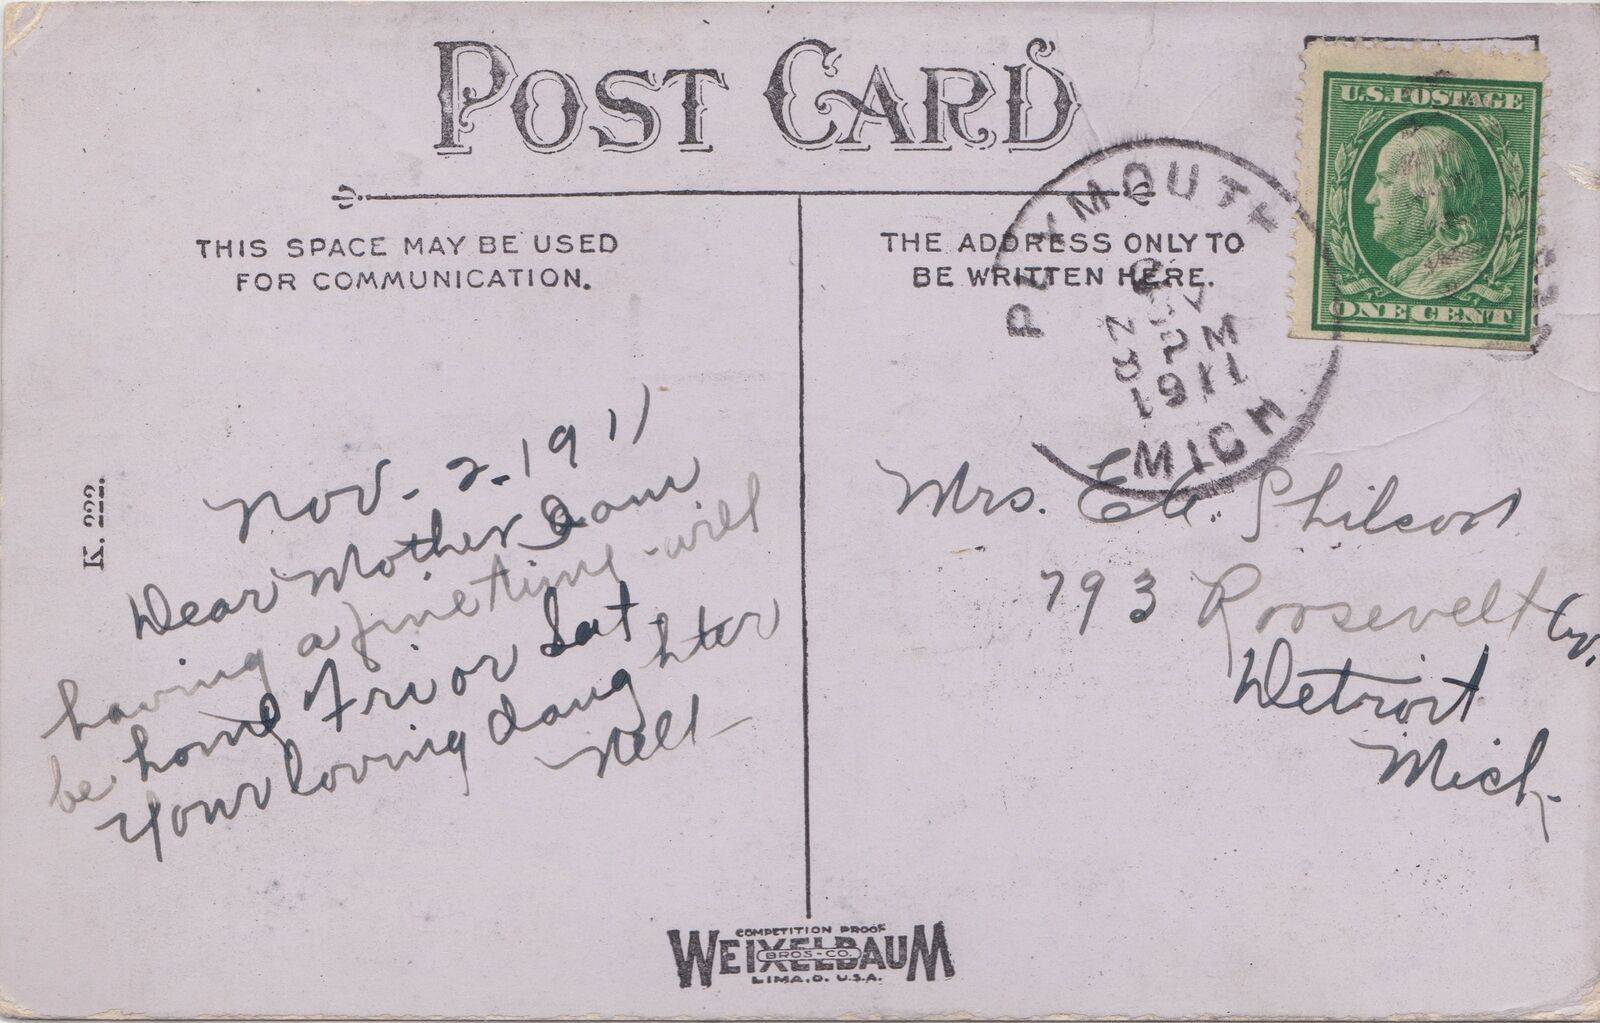 POST CARD
THIS SPACE MAY BE USED
FOR COMMUNICATION.
THE ADDRESS ONLY TO
BE WRITTEN HERE.
U.S. POSTAGE
ONE CENT
PLYMOUTH
NOV
2
M
1911
MICH
K. 222.
Nov. 2. 1911
Dear Mother I am
having a fine time will
be home Fri or Sat.
Your loving daughter
Nell
Mrs.
793 Roosevelt Av.
Detroit
Mich.
COMPETITION PROOF
WEIXELBAUM
BROS. CO.
LIMA, O. U.S.A.